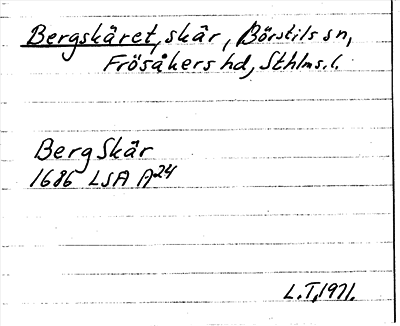 Bergskäret, skär, Börstils sn,
Frösåkers hd, Sthlms. l.
Berg Skär
1686 LSA A24
L.T. 1971.